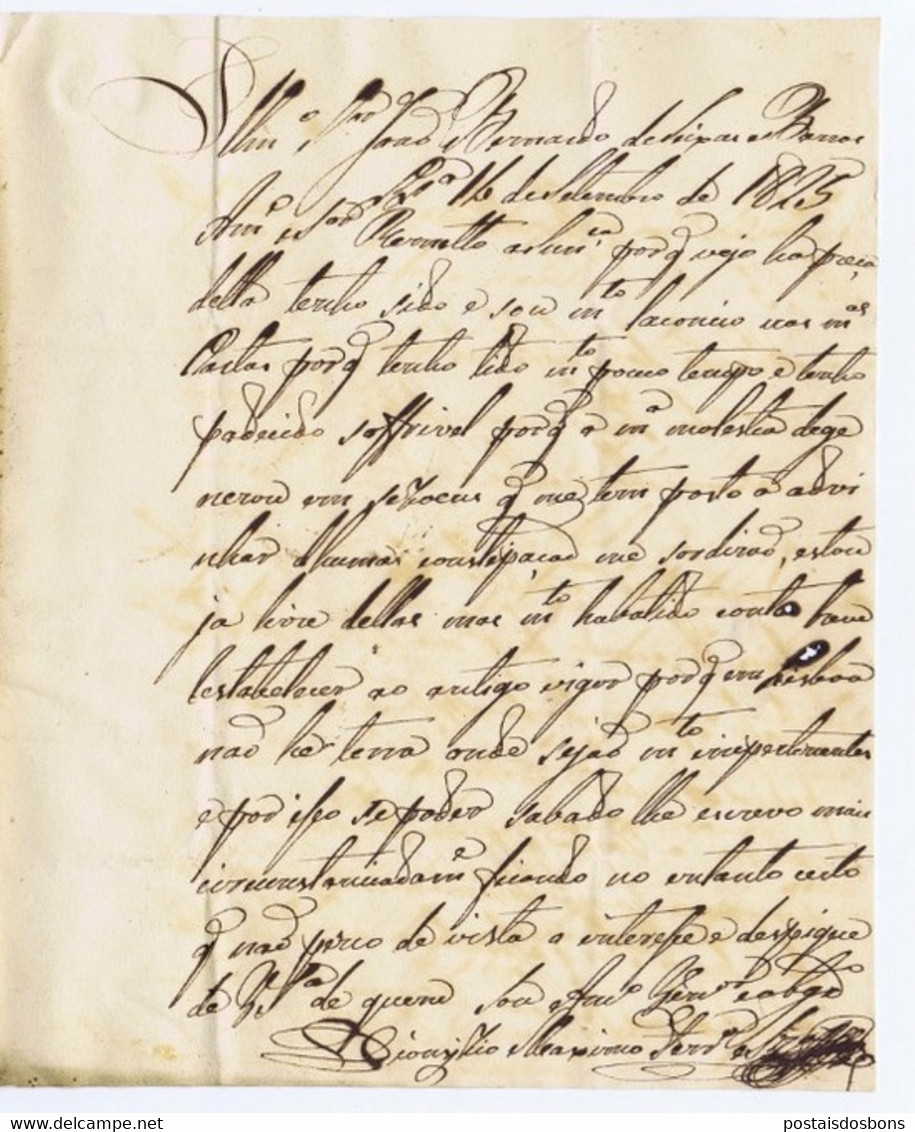 Illmo Snr João Bernardo de e Barros
Lxa 16 de Setembro de 1825
Amo e Snr Remetto a porq vejo ha preci
della tenho sido e sou mto laconico nas mas
Cartas porq tenho tido mto pouco tempo e tenho
padecido soffrivel porq a ma molestia dege
nerou em sezoens q me tem posto a advi
nhar constipação me estou
ja livre dellas mas mto habatido conto breve
restabelecer ao antigo vigor porq em Lisboa
não he terra onde sejão mto impertinentes
e por isso se poder sabado lhe escrevo mais
circumstanciadame ficando no entanto certo
q não perco de vista o interesse e despique
de V Sa de quem sou Amo Vor e obgdo
Dionizio Maximo
postaisdosbons